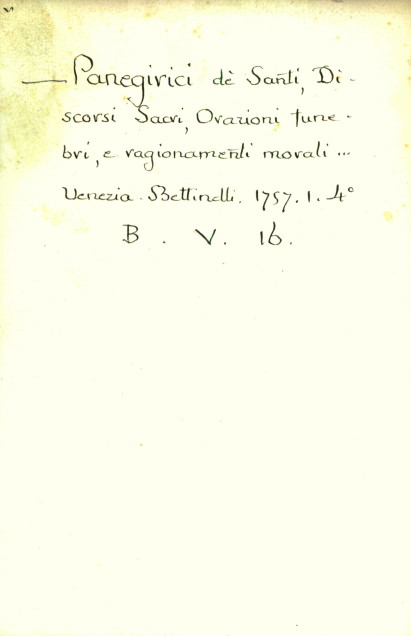 — Panegirici dè Santi, Di-
scorsi Sacri, Orazioni fune-
bri, e ragionamenti morali ...
Venezia. Bettinelli. 1757. 1. 4°
B. V. 16.